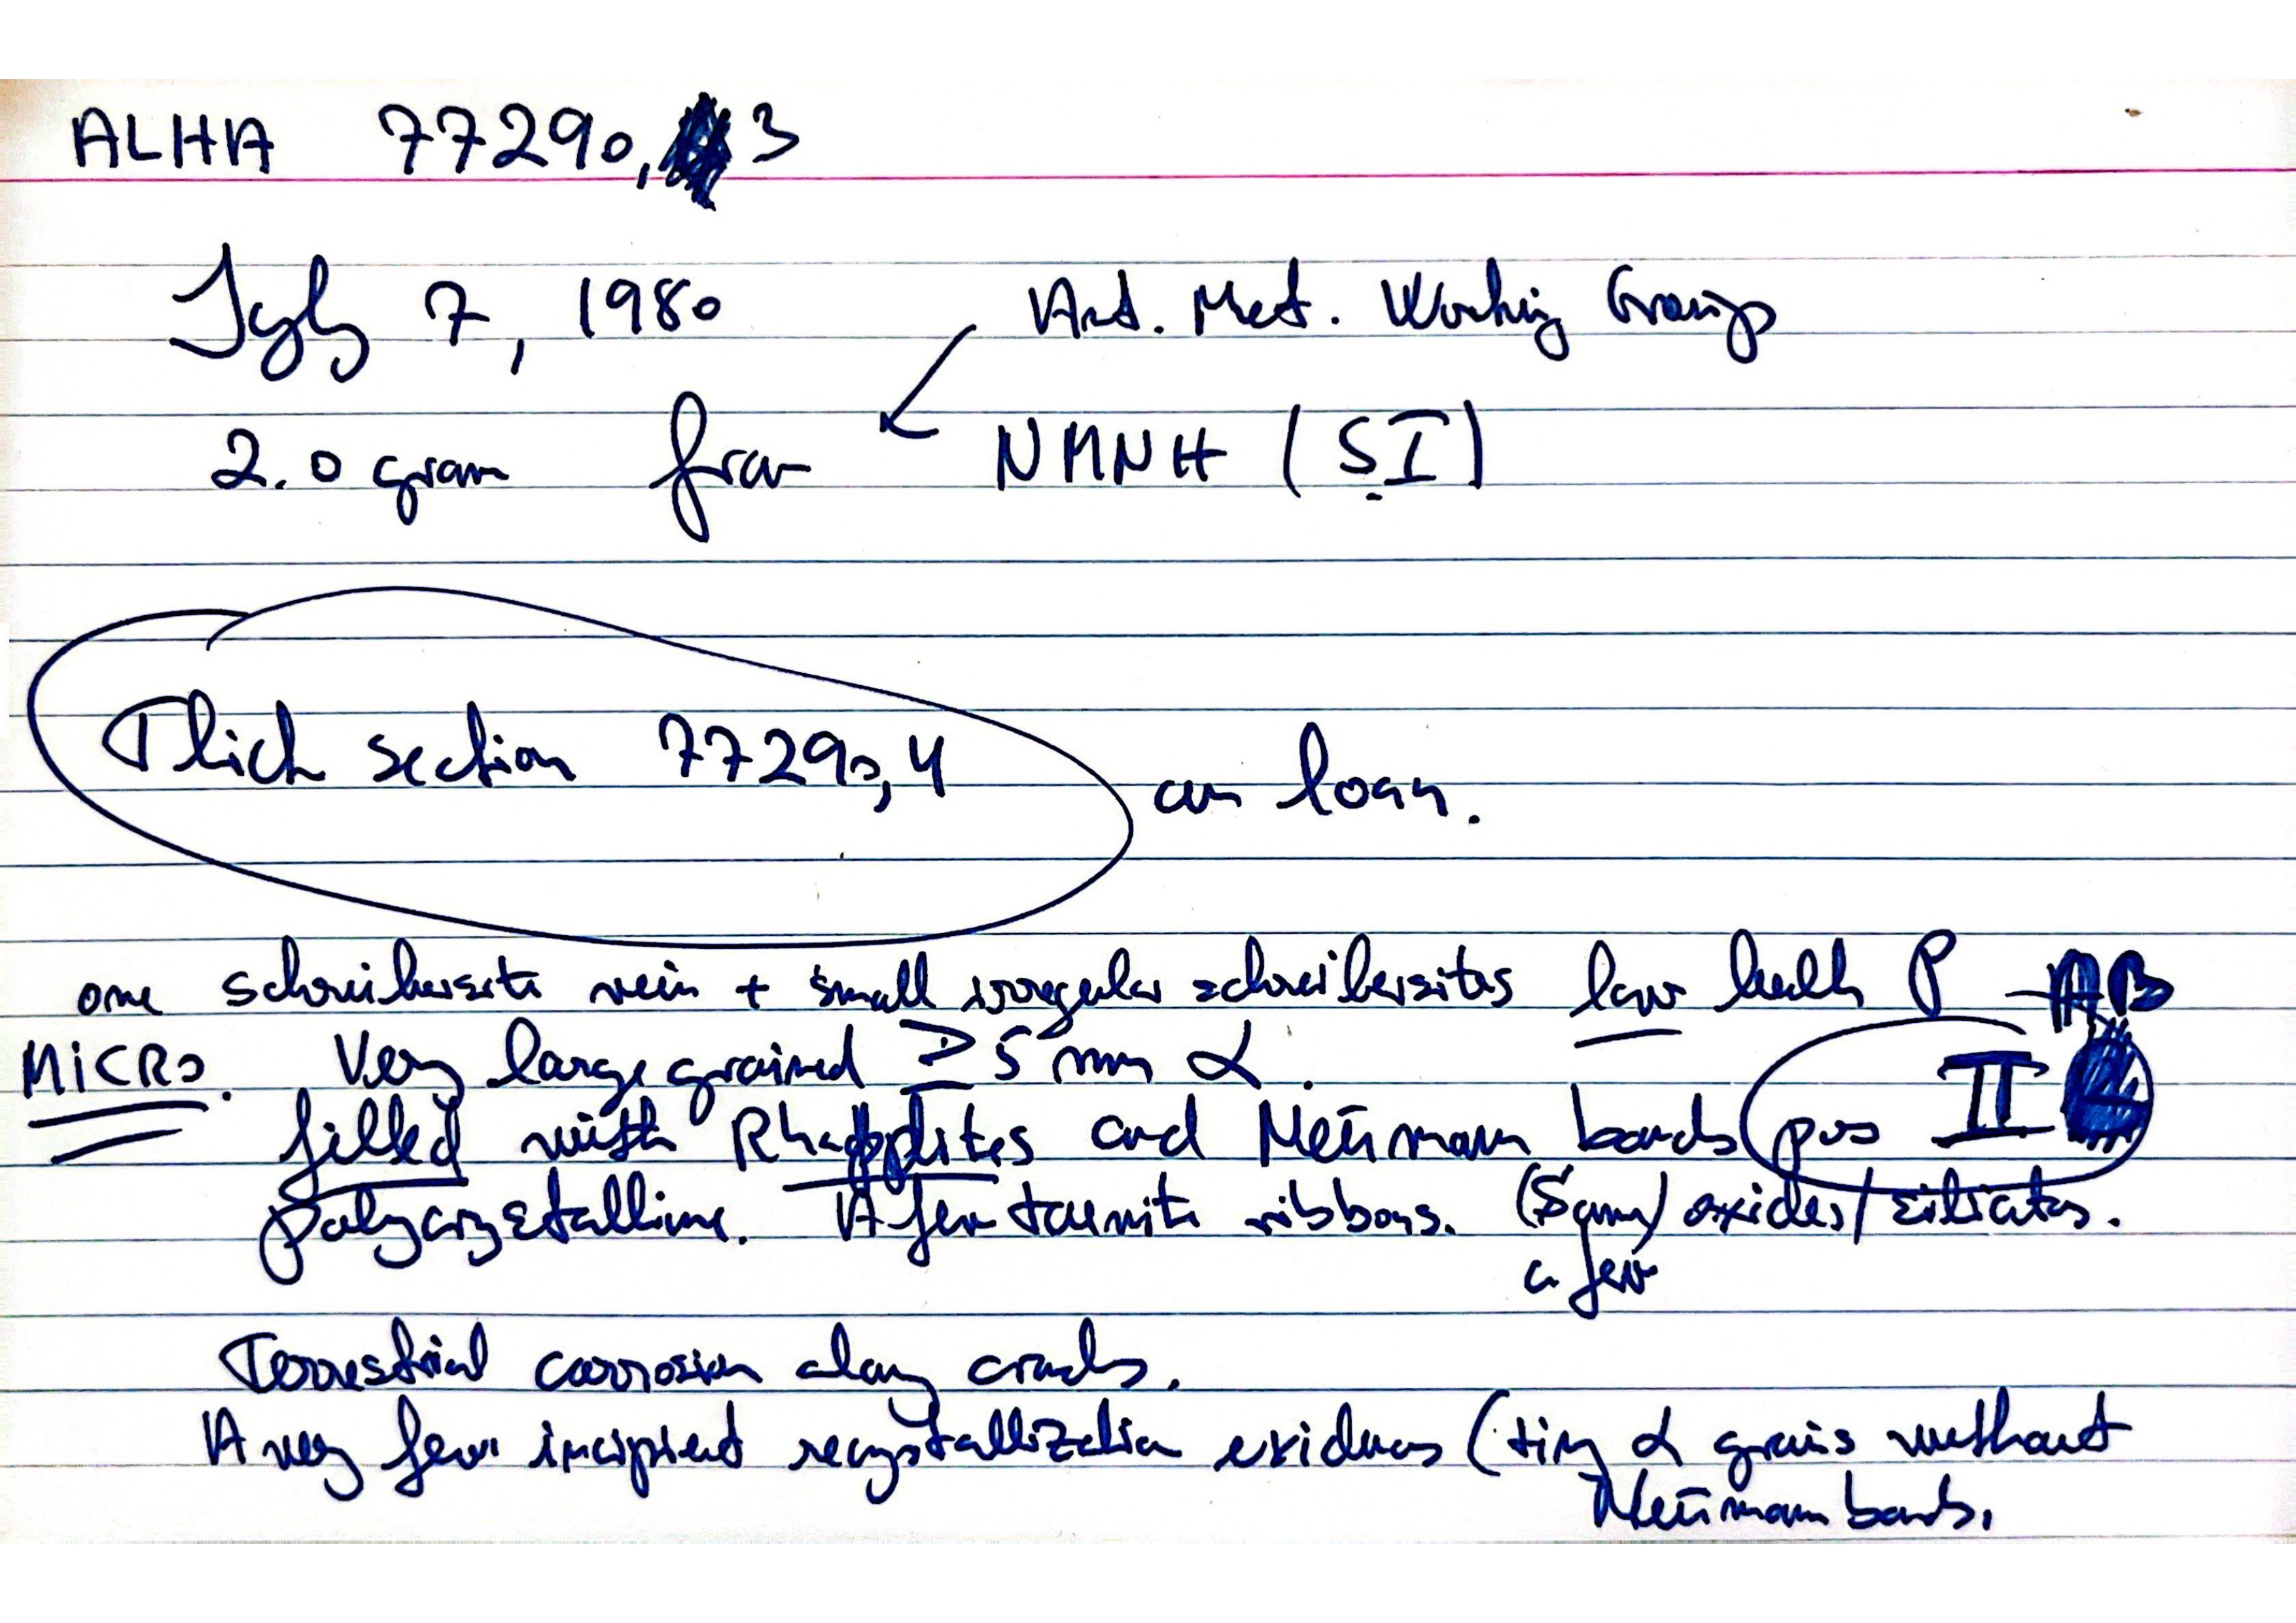 ALHA 77290, 3
July 7, 1980
Ant. Met. Working Group
2.0 gram from NMNH (SI)
Thick section 77290,4 on loan.
one schreibersite vein + small irregular schreibersites low bulk P AB
MICRO. Very large grained ≥ 5 mm α.
filled with Rhabdites and Neümann bands pos II
polycrystalline. A few taenite ribbons. (5 μm) oxides/silicates.
a few
Terrestrial corrosion along cracks.
A very few incipient recrystallization (tiny α grains without
Neümann bands.